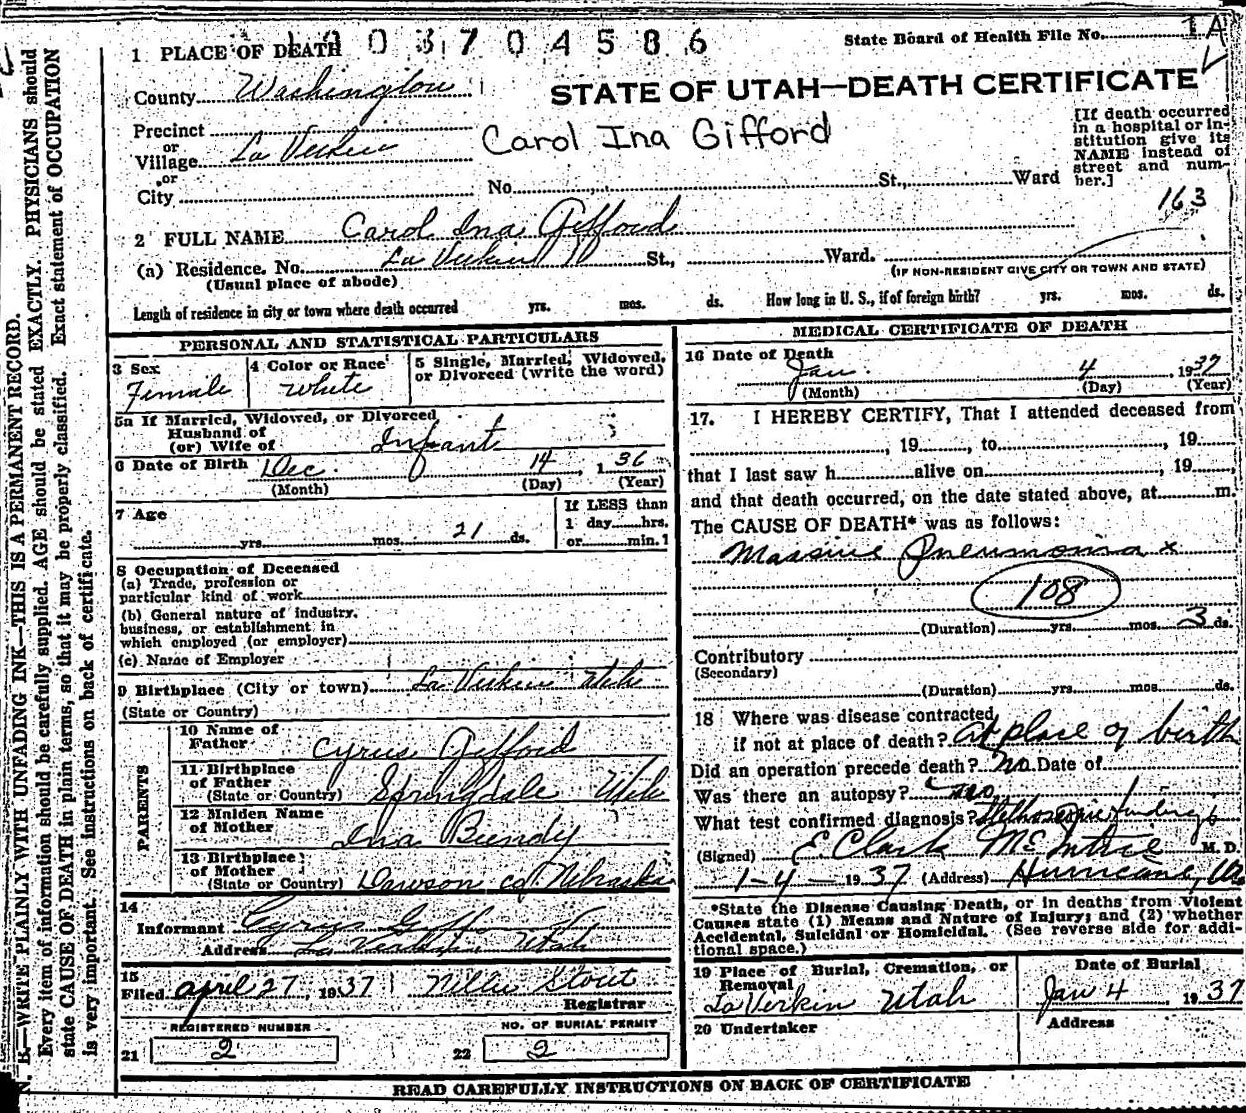 1 0 0 3 7 0 4 5 8 6
State Board of Health File No. 1A
1 PLACE OF DEATH
County Washington
STATE OF UTAH—DEATH CERTIFICATE
Precinct
or
Village La Verkin
Carol Ina Gifford
[If death occurred in a hospital or institution give its NAME instead of street and number.]
or
City
No. St., Ward
163
2 FULL NAME Carol Ina Gifford
(a) Residence. No. La Verkin St., Ward.
(Usual place of abode)
(IF NON-RESIDENT GIVE CITY OR TOWN AND STATE)
Length of residence in city or town where death occurred yrs. mos. ds. How long in U. S., if of foreign birth? yrs. mos. ds.
PERSONAL AND STATISTICAL PARTICULARS
3 Sex
Female
4 Color or Race
White
5 Single, Married, Widowed, or Divorced (write the word)
5a If Married, Widowed, or Divorced
Husband of
(or) Wife of Infant
6 Date of Birth Dec. 14, 1 36
(Month) (Day) (Year)
7 Age
yrs. mos. 21 ds.
If LESS than
1 day hrs.
or min.
8 Occupation of Deceased
(a) Trade, profession or
particular kind of work
(b) General nature of industry,
business, or establishment in
which employed (or employer)
(c) Name of Employer
9 Birthplace (City or town) La Verkin Utah
(State or Country)
PARENTS
10 Name of
Father Cyrus Gifford
11 Birthplace
of Father
(State or Country) Springdale Utah
12 Maiden Name
of Mother Ina Bundy
13 Birthplace
of Mother
(State or Country) Dawson co Nebraska
14
Informant Cyrus Gifford
Address La Verkin Utah
15
Filed april 27, 1937 Nellie Stout
Registrar
REGISTERED NUMBER
21 2
NO. OF BURIAL PERMIT
22 2
MEDICAL CERTIFICATE OF DEATH
16 Date of Death
Jan. 4 1937
(Month) (Day) (Year)
17. I HEREBY CERTIFY, That I attended deceased from
, 19 , to , 19
that I last saw h alive on , 19 ,
and that death occurred, on the date stated above, at m.
The CAUSE OF DEATH* was as follows:
Massive Pneumonia x
108
(Duration) yrs. mos. 3 ds.
Contributory
(Secondary)
(Duration) yrs. mos. ds.
18 Where was disease contracted
if not at place of death? At place of birth
Did an operation precede death? no. Date of
Was there an autopsy? no
What test confirmed diagnosis? Stethoscopic findings
(Signed) E. Clark McIntire M. D.
1-4- 1937 (Address) Hurricane, Ut
*State the Disease Causing Death, or in deaths from Violent
Causes state (1) Means and Nature of Injury; and (2) whether
Accidental, Suicidal or Homicidal. (See reverse side for addi-
tional space.)
19 Place of Burial, Cremation, or
Removal
La Verkin Utah
Date of Burial
Jan 4, 1937
20 Undertaker
Address
READ CAREFULLY INSTRUCTIONS ON BACK OF CERTIFICATE
N. B.—WRITE PLAINLY WITH UNFADING INK—THIS IS A PERMANENT RECORD.
Every item of information should be carefully supplied. AGE should be stated EXACTLY. PHYSICIANS should
state CAUSE OF DEATH in plain terms, so that it may be properly classified. Exact statement of OCCUPATION
is very important. See instructions on back of certificate.